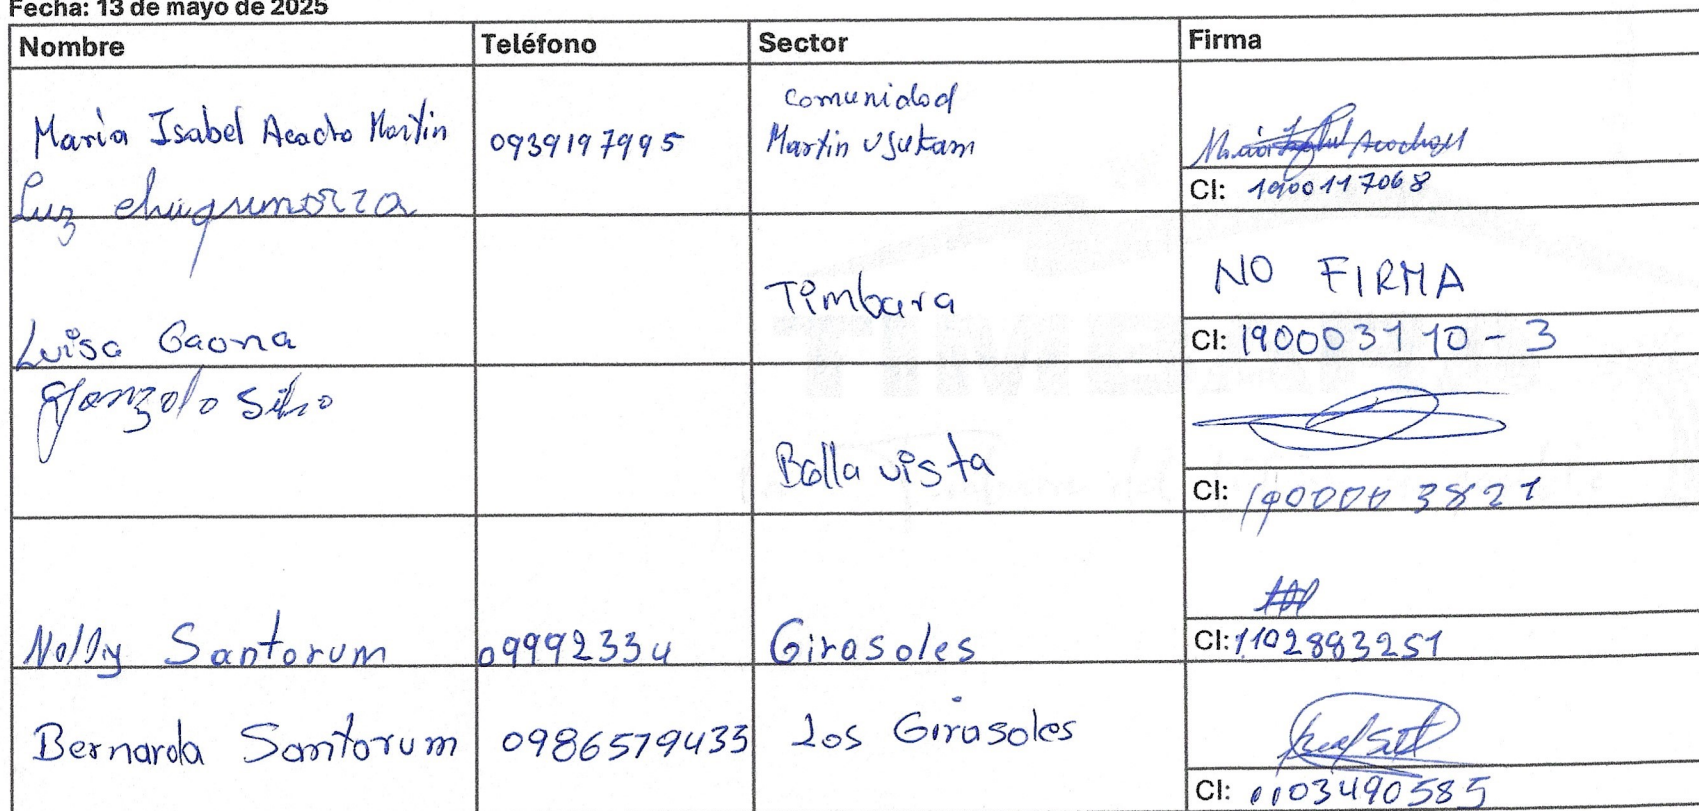 Fecha: 13 de mayo de 2025
Nombre Teléfono Sector Firma
María Isabel Acacho Martin 0939197995 Comunidad
Martin Ujukam
CI: 1900117068
Luz
Timbara NO FIRMA
Luisa Gaona CI: 190003110-3
Gonzalo Silio
Bella vista
CI: 1900003821
Nelly Santorum 09992334 Girasoles CI: 1102893251
Bernarda Santorum 0986579433 Los Girasoles
CI: 1103490585